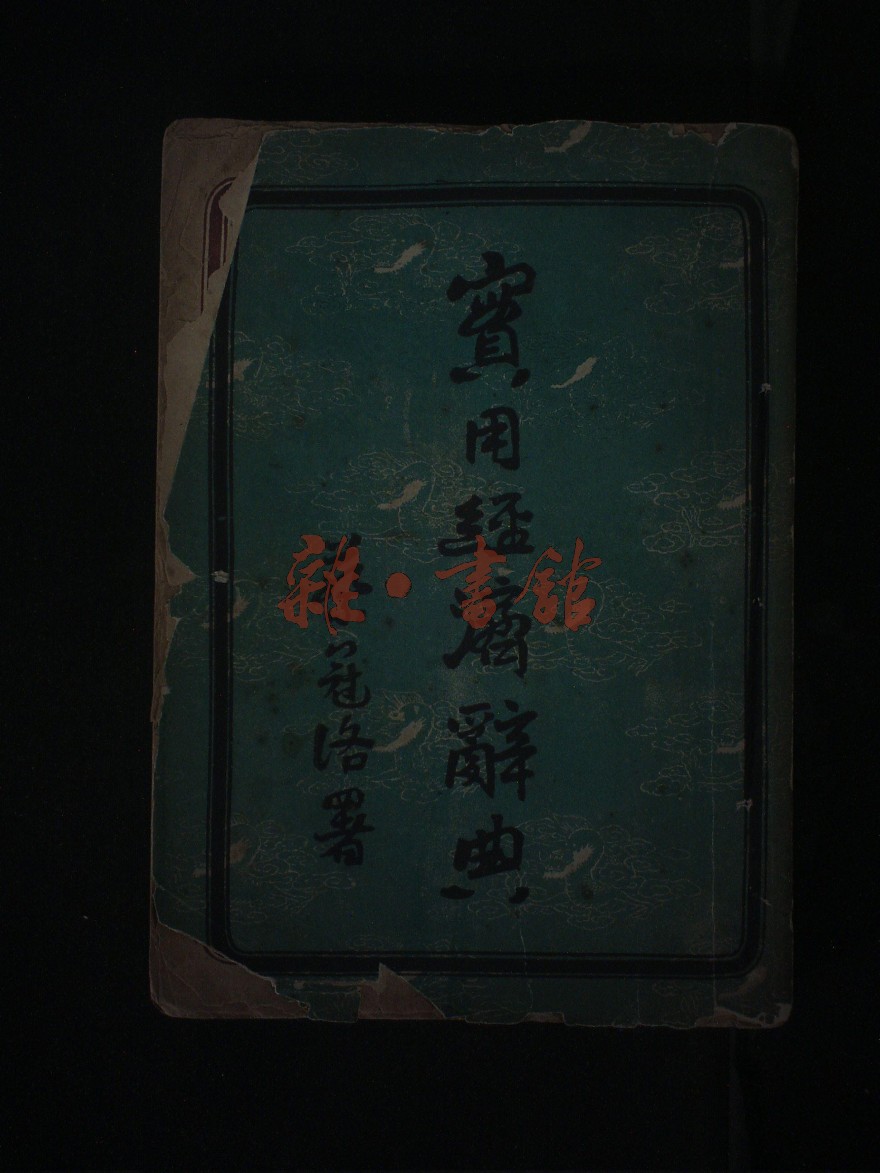 實用經濟辭典
冠洛署
雜·書館